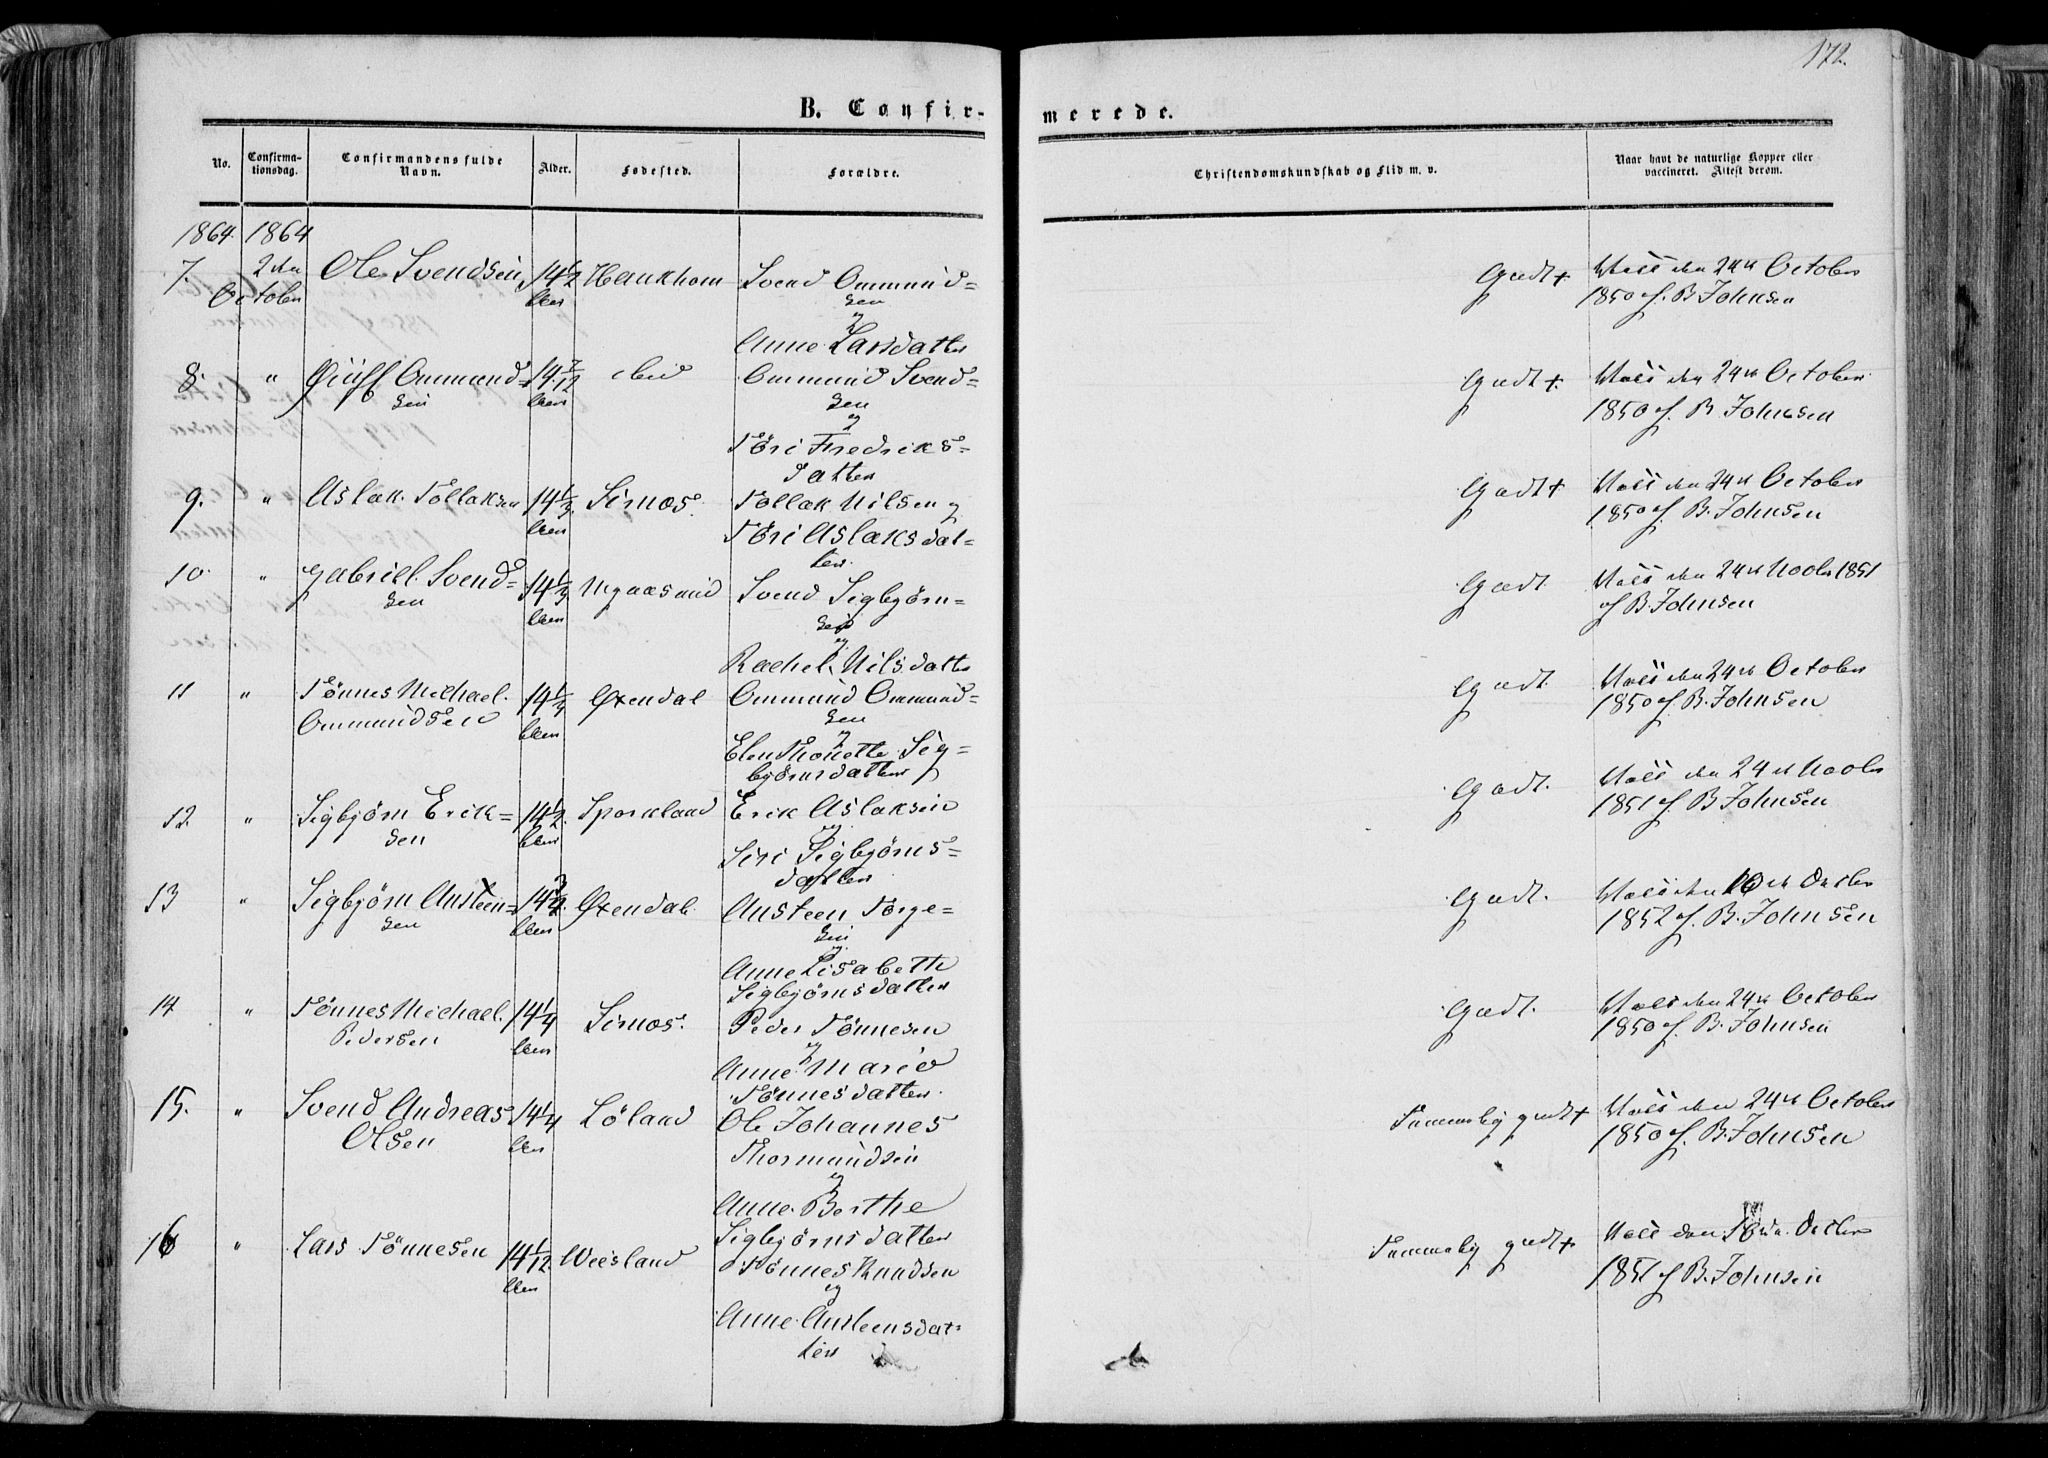 172.
B. Confirmerede.
No. Confirmationsdag. Confirmandens fulde Navn. Alder. Fødested. Forældre. Christendomskundskab og Flid m. v. Naar havt de naturlige Kopper eller vaccineret. Attest derom.
1864. 1864
7. 2den October Ole Svendsen 14 1/2 Svend Ommundsen og Anne Larsdatter Godt + den 24de October 1850 af B. Johnsen
8. " Ommundsen 14 7/12 Ommund Svendsen og Töri Fredriksdatter Godt +. den 24de October 1850 af B. Johnsen
9. " Aslak Tollaksen 14 1/3. Sirnos. Tollak Nilsen og Töri Aslaksdatter. Godt + den 24de October 1850 af. B. Johnsen
10. " Gabriel Svendsen 14 1/3 Svend Sigbjørnsen og Rachel Nilsdatter Godt. den 24de 1851 af B. Johnsen
11 " Tönnes Michael. Ommundsen 14 1/3 Øxendal Ommund Ommundsen og Elen Thonette Sigbjørnsdatter Godt. den 24de October 1850 af B. Johnsen
12. " Sigbjørn Eriksen 14 1/2. Sporkland Erik Aslaksen og Siri Sigbjørnsdatter Godt. den 24de 1851 af B. Johnsen
13 " Sigbjørn Austeensen 14 Øxendal. Austeen Torgesen og. Anne Lisabette Sigbjørnsdatter Godt. 1852 af. B. Johnsen
14 " Tönnes Michael. Pedersen 14 1/4 Sirnos. Peder Tönnesen og Anne Marie Tönnesdatter. Godt. den 24de October 1850 af. B. Johnsen
15. " Svend Andreas Olsen 14 1/4 Löland Ole Johannes Thormundsen og Anne Berthe Sigbjørnsdatter Temmelig godt + den 24de October 1850 af. B. Johnsen
16 " Lars Tönnesen 14 1/12. Weesland Tönnes Knudsen og Anne Austeensdatter Temmelig godt + 1851 af B. Johnsen